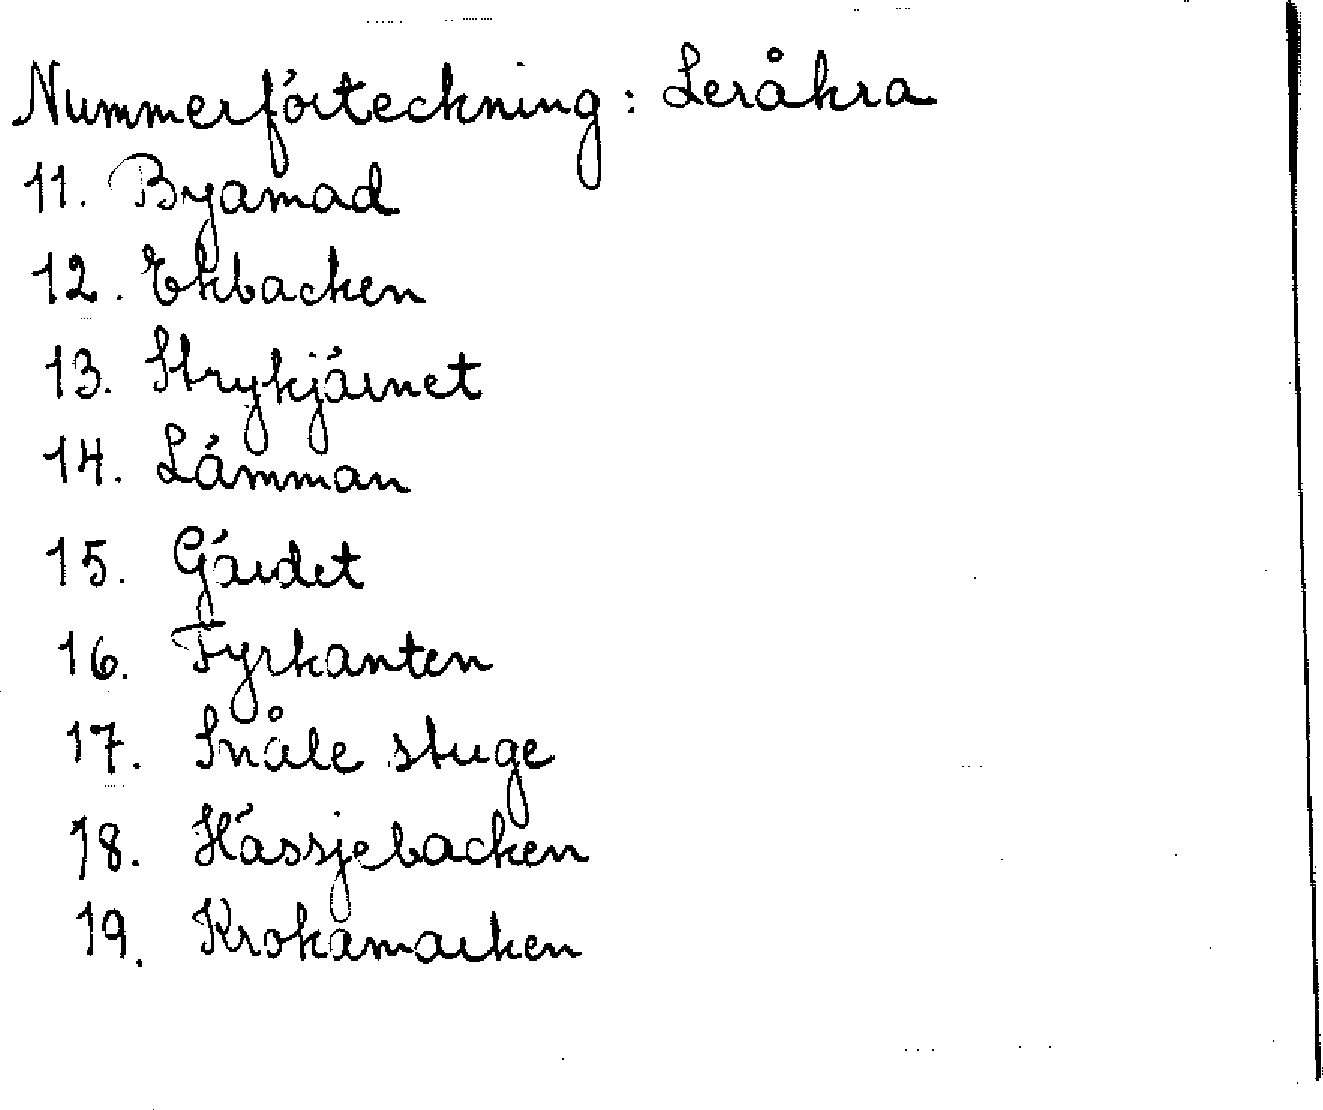 Nummerförteckning: Leråkra
11. Byamad
12. Ekbacken
13. Strykjärnet
14. Lámman
15. Gärdet
16. Fyrkanten
17. Snåle stuge
18. Hässjebacken
19. Krokamarken